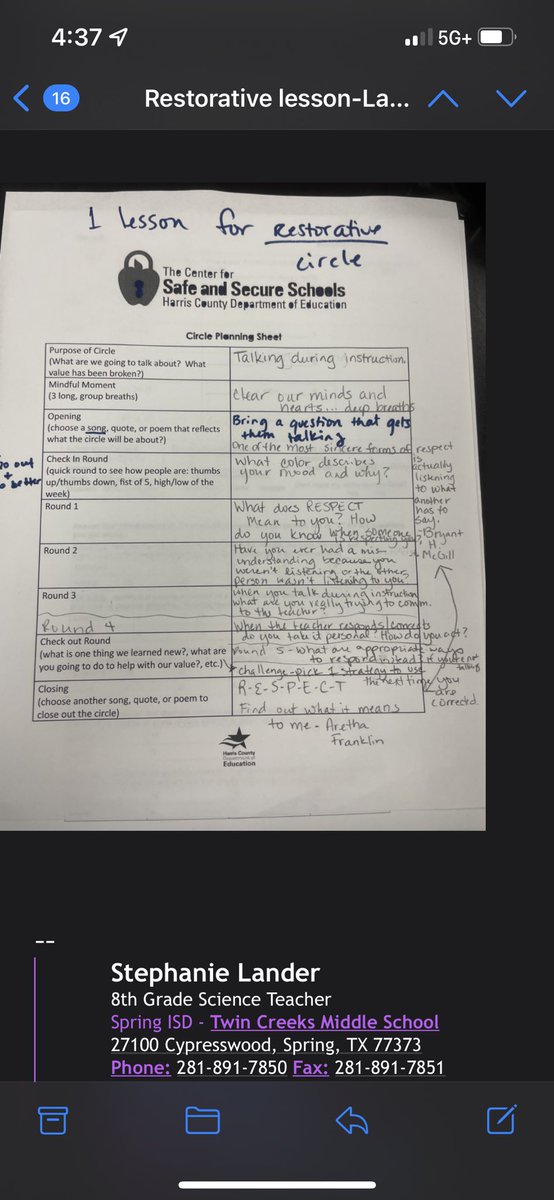 4:37
5G+
16
Restorative lesson-La...
1 lesson for Restorative
circle
The Center for
Safe and Secure Schools
Harris County Department of Education
Circle Planning Sheet
Purpose of Circle
(What are we going to talk about? What
value has been broken?)
Talking during instruction.
Mindful Moment
(3 long, group breaths)
Clear our minds and
hearts... deep breaths
Opening
(choose a song, quote, or poem that reflects
what the circle will be about?)
Bring a question that gets
them talking
One of the most sincere forms of respect
is
actually
listening
to what
another
has to
say.
-Bryant
H.
McGill
Check In Round
(quick round to see how people are: thumbs
up/thumbs down, fist of 5, high/low of the
week)
What color describes
your mood and why?
Round 1
What does RESPECT
mean to you? How
do you know when someone
Round 2
Have you ever had a mis-
understanding because you
weren't listening or the other
person wasn't listening to you?
Round 3
When you talk during instruction
what are you really trying to comm.
to the teacher?
Round 4
When the teacher responds/corrects
do you take it personal? How do you act?
Check out Round
(what is one thing we learned new?, what are
you going to do to help with our value?, etc.)
Round 5 - what are appropriate ways
to respond instead? if you're not
talking
challenge-pick 1 strategy to use
the next time you
are
corrected.
Closing
(choose another song, quote, or poem to
close out the circle)
R-E-S-P-E-C-T
Find out what it means
to me - Aretha
Franklin
Harris County
Department of
Education
--
Stephanie Lander
8th Grade Science Teacher
Spring ISD - Twin Creeks Middle School
27100 Cypresswood, Spring, TX 77373
Phone: 281-891-7850 Fax: 281-891-7851